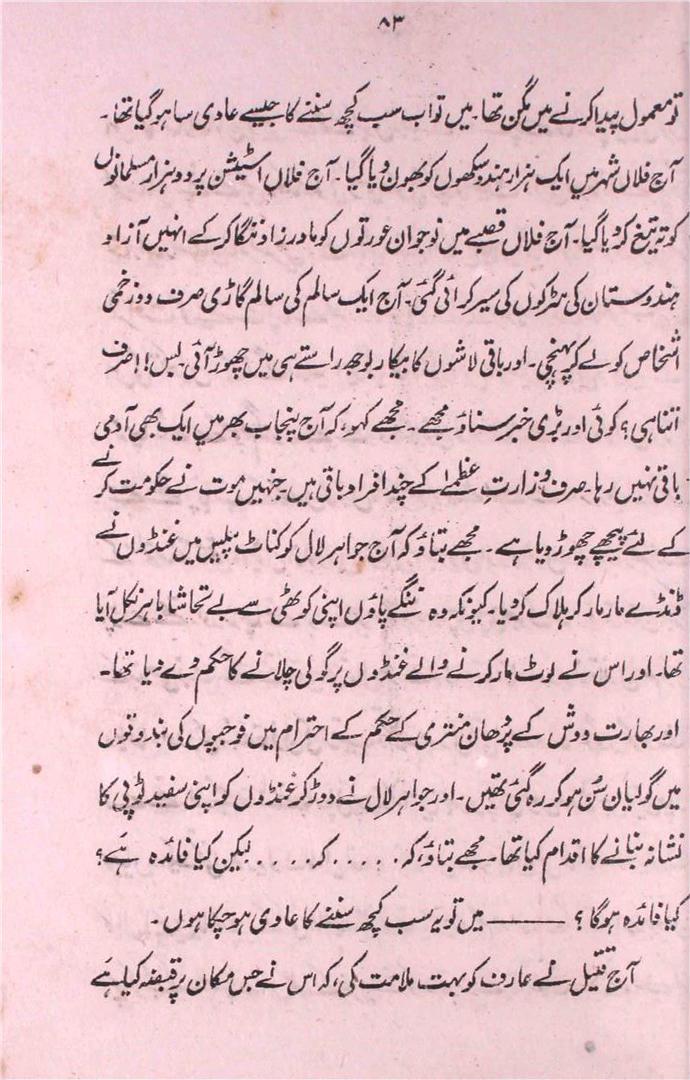 ۸۳
تو معمول پیدا کرنے میں مگن تھا۔ میں تو اب سب کچھ سننے کا جیسے عادی سا ہو گیا تھا۔
آج فلاں شہر میں ایک ہزار ہندو سکھوں کو بھون دیا گیا۔ آج فلاں اسٹیشن پر دو ہزار مسلمانوں
کو تہ تیغ کر دیا گیا۔ آج فلاں قصبے میں نوجوان عورتوں کو مادر زاد ننگا کر کے انہیں آزاد
ہندوستان کی سڑکوں کی سیر کرائی گئی۔ آج ایک سالم کی سالم گاڑی صرف دو زخمی
اشخاص کو لے کر پہنچی۔ اور باقی لاشوں کا بیکار بوجھ راستے ہی میں چھوڑ آئی۔ بس!! صرف
اتنا ہی؟ کوئی اور بڑی خبر سناؤ مجھے۔ مجھے کہو، کہ آج پنجاب بھر میں ایک بھی آدمی
باقی نہیں رہا۔ صرف وزارتِ عظمےٰ کے چند افراد باقی ہیں۔ جنہیں موت نے حکومت کرنے
کے لئے پیچھے چھوڑ دیا ہے۔ مجھے بتاؤ کہ آج جواہر لال کو کناٹ پلیس میں غنڈوں نے
ڈنڈے مار مار کر ہلاک کر دیا۔ کیونکہ وہ ننگے پاؤں اپنی کوٹھی سے بے تحاشا باہر نکل آیا
تھا۔ اور اس نے لوٹ مار کرنے والے غنڈوں پر گولی چلانے کا حکم دے دیا تھا۔
اور بھارت دوش کے پردھان منتری کے حکم کے احترام میں فوجیوں کی بندوقوں
میں گولیاں سُن ہو کر رہ گئی تھیں۔ اور جواہر لال نے دوڑ کر غنڈوں کو اپنی سفید ٹوپی کا
نشانہ بنانے کا اقدام کیا تھا۔ مجھے بتاؤ، کہ ..... کہ .... لیکن کیا فائدہ ہے؟
کیا فائدہ ہوگا؟ ——— میں تو یہ سب کچھ سننے کا عادی ہو چکا ہوں۔
آج قتیل نے عارف کو بہت ملامت کی، کہ اس نے جس مکان پر قبضہ کیا ہے